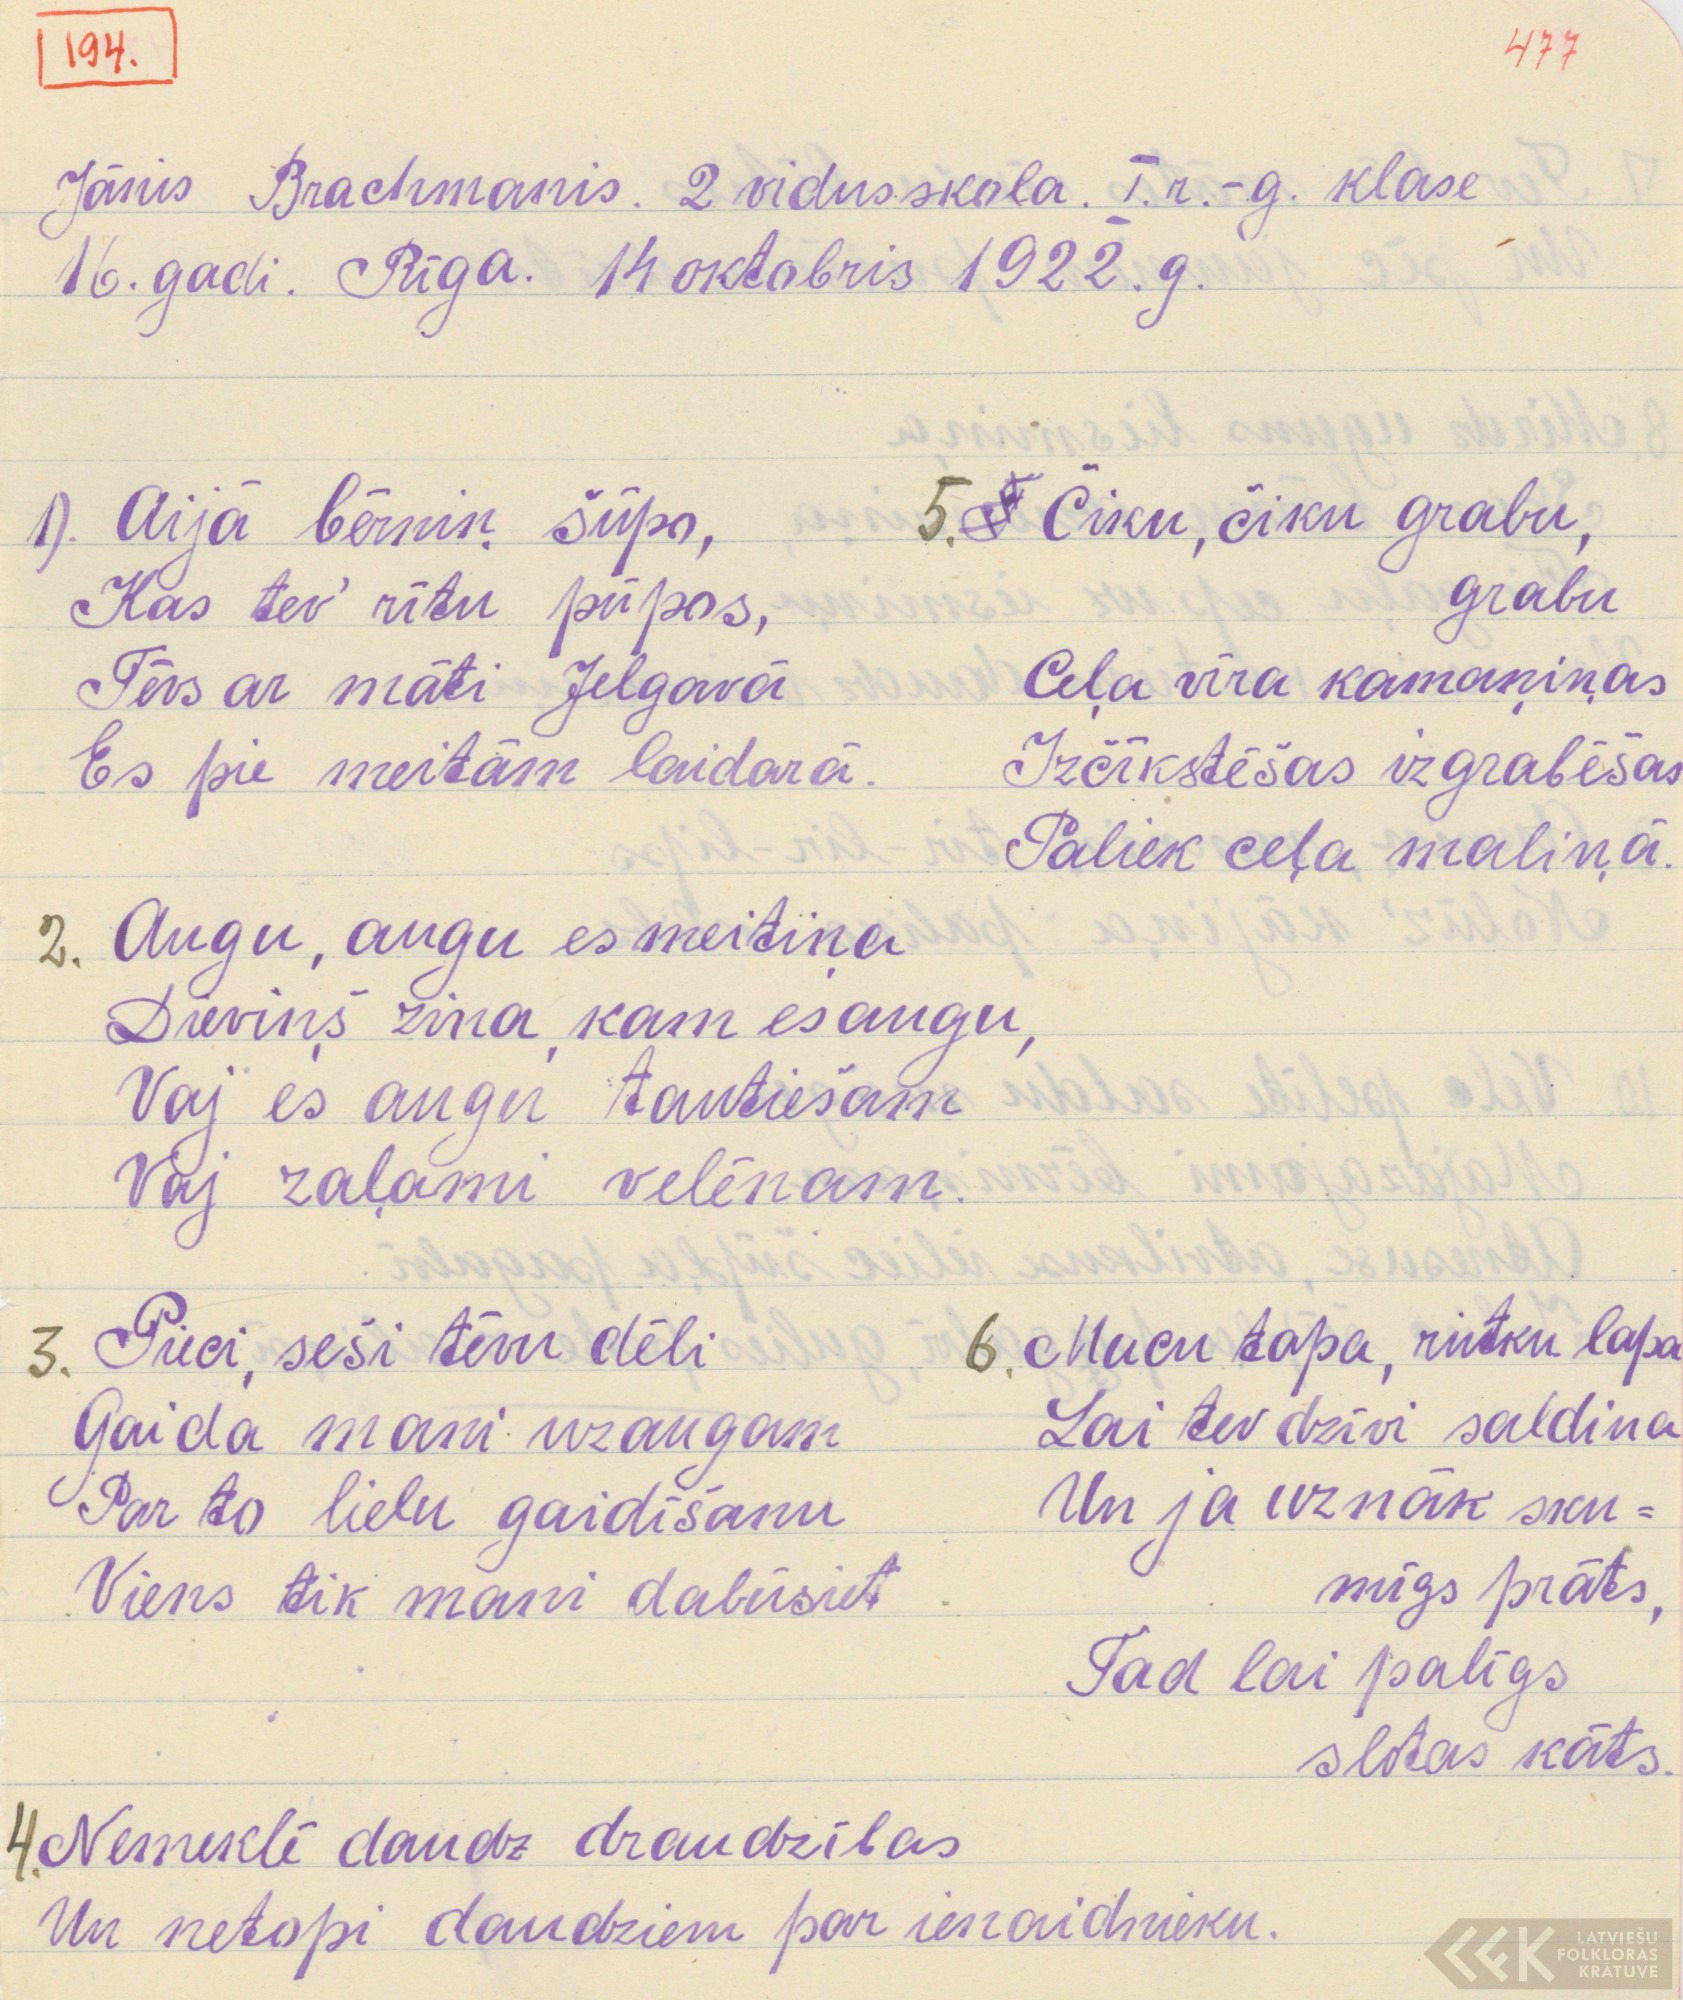 194.
477
Jānis Brachmanis. 2 vidusskola. I. r.-g. klase
16. gadi. Rīga. 14 oktobris 1922. g.
1). Aijā bērniņ šūpo,
Kas tev' rītu pūpos,
Tēvs ar māti Jelgavā
Es pie meitām laidarā.
2. Augu, augu es meitiņa
Dieviņš zina, kam es augu,
Vaj es augu tautiešam
Vaj zaļami velēnam.
3. Pieci, seši tēvu dēli
Gaida mani uzaugam
Par to lielu gaidīšanu
Viens tik mani dabūsiet
4. Nemeklē daudz draudzības
Un netopi daudziem par ienaidnieku.
5. Čiku, čiku grabu,
grabu
Ceļa vīra kamaņiņas
Izčīkstēšas izgrabēšas
Paliek ceļa maliņā.
6. Mucu tapa, rutku lapa
Lai tev dzīvi saldina
Un ja uznāk sku=
mīgs prāts,
Tad lai palīgs
slotas kāts.
LATVIEŠU
FOLKLORAS
KRĀTUVE